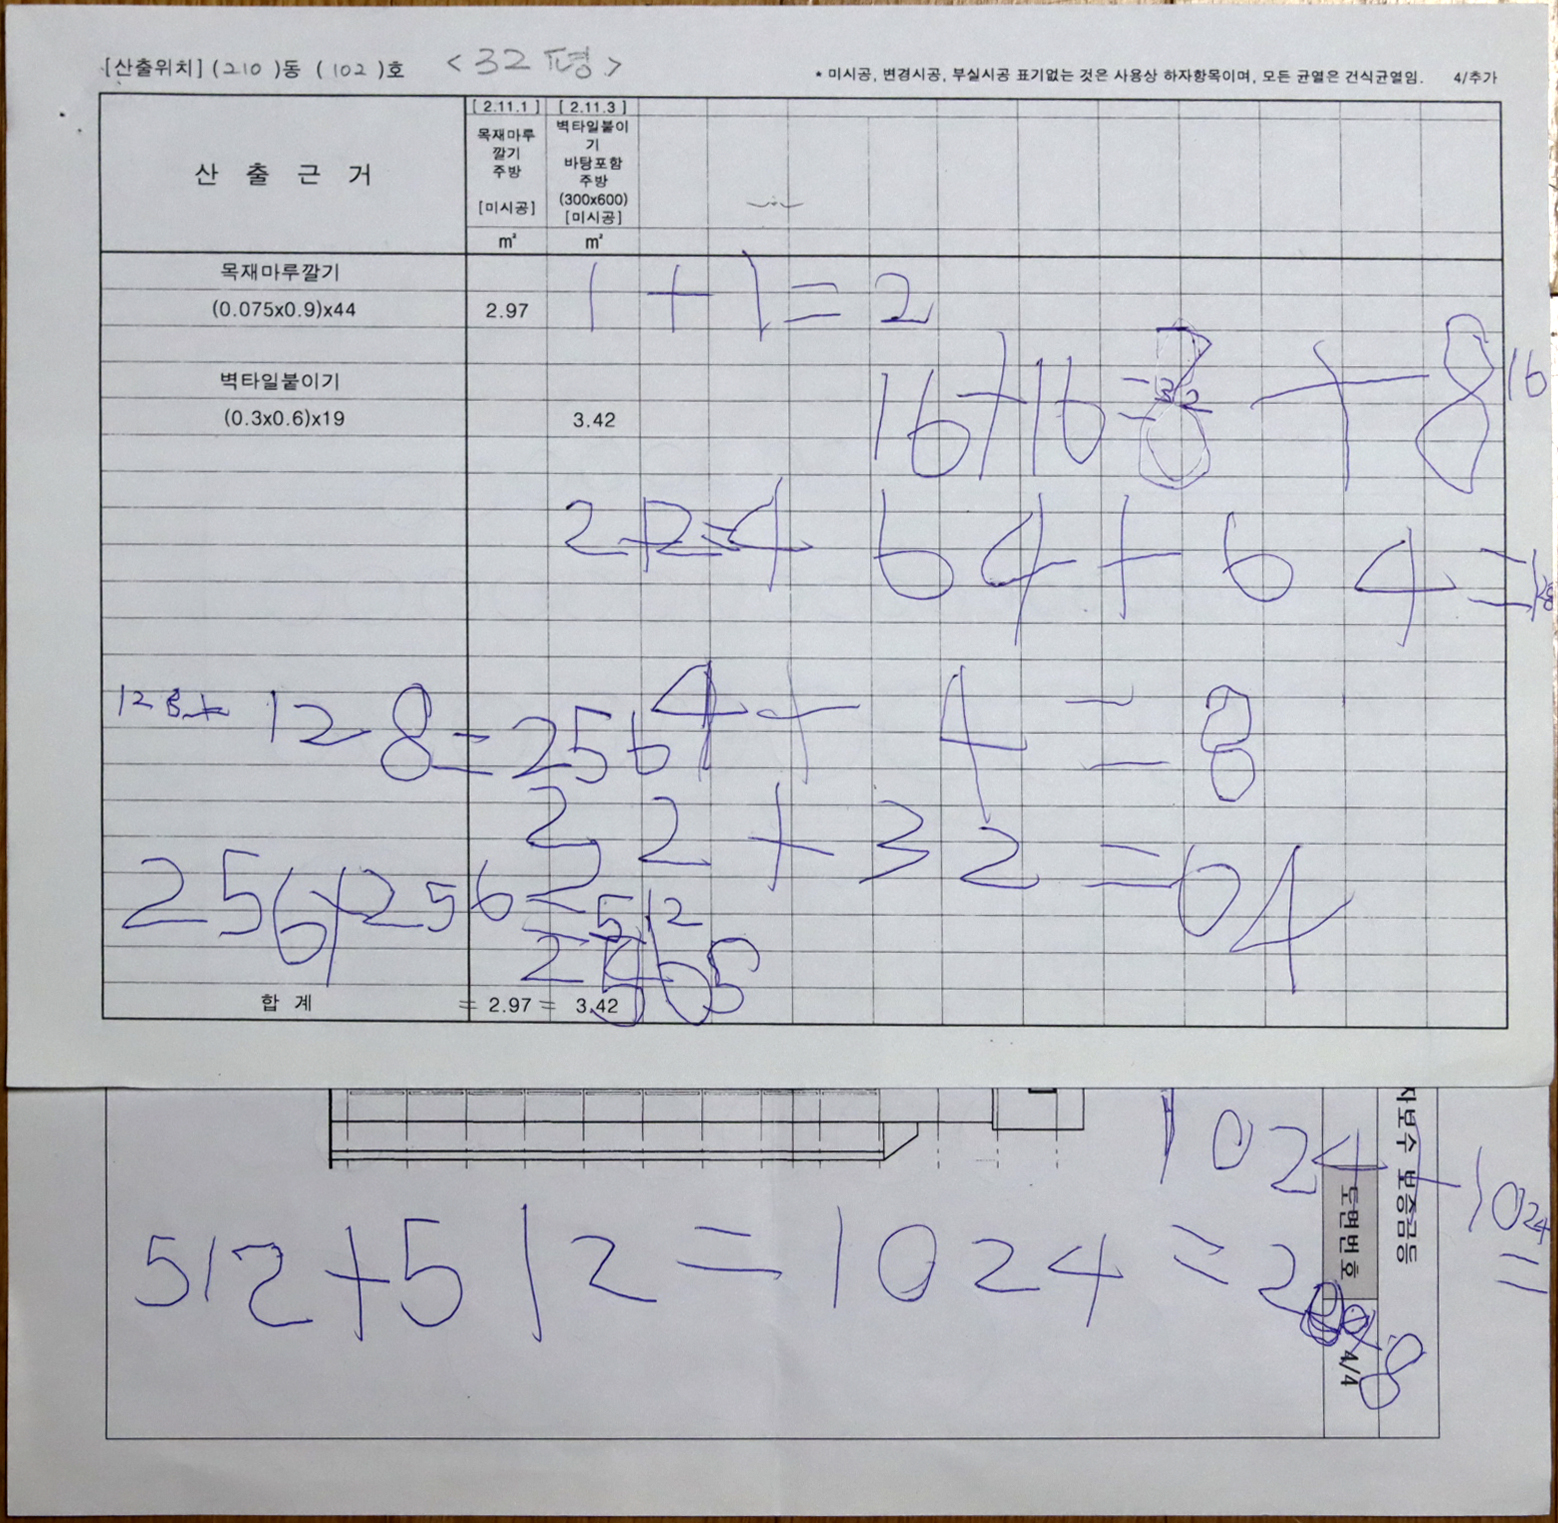 [산출위치] (210)동 (102)호 <32평>
* 미시공, 변경시공, 부실시공 표기없는 것은 사용상 하자항목이며, 모든 균열은 건식균열임. 4/추가
산 출 근 거
[2.11.1]
목재마루
깔기
주방
[미시공]
m²
[2.11.3]
벽타일붙이
기
바탕포함
주방
(300x600)
[미시공]
m²
목재마루깔기
(0.075x0.9)x44 2.97
벽타일붙이기
(0.3x0.6)x19 3.42
1+1=2
8+8
16
16+16=32
2+2=4
64+64=128
4+4=8
128+128=256
32+32=64
256+256=512
합 계 = 2.97 = 3.42
1024+1024=
512+512=1024
=20
8
자보수 보증금등
도면번호
4/4